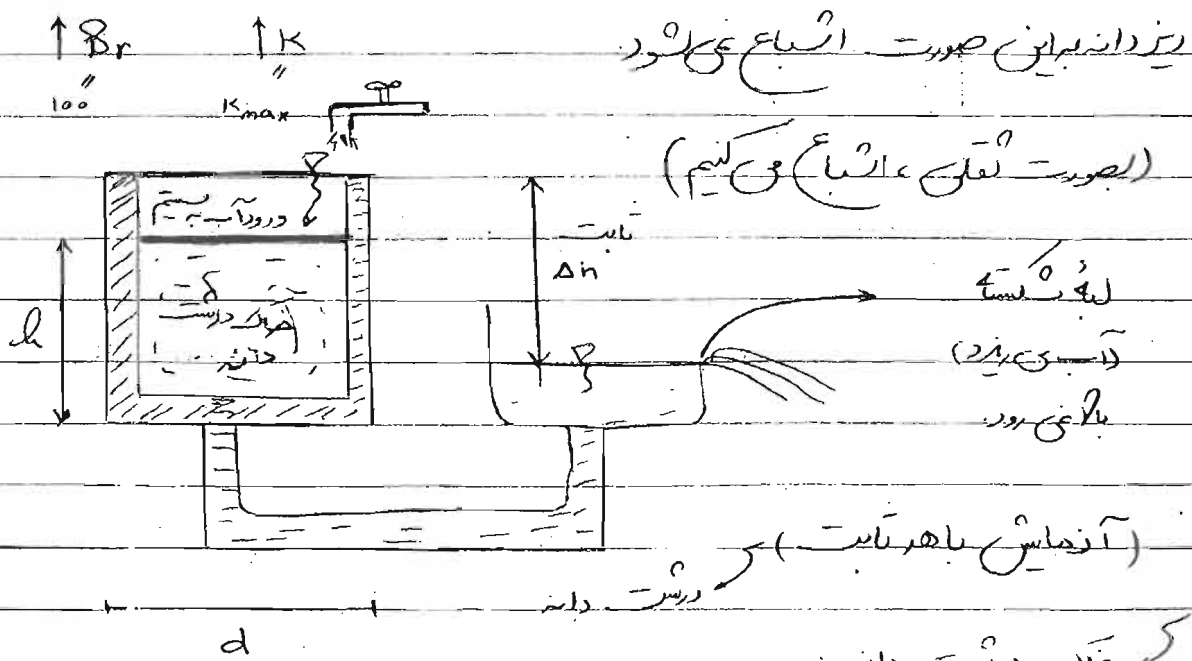 ↑ Sr ↑ K
" "
100 Kmax
ریز دانه به این صورت اشباع نمی‌شود
(بصورت ثقلی، اشباع می‌کنیم)
ورود آب به سیستم
ثابت
Δh
h
خاک درشت
دانه
لبهٔ شکسته
(آب می‌ریزد)
بالا نمی‌رود.
(آزمایش با هد ثابت)
درشت دانه
d